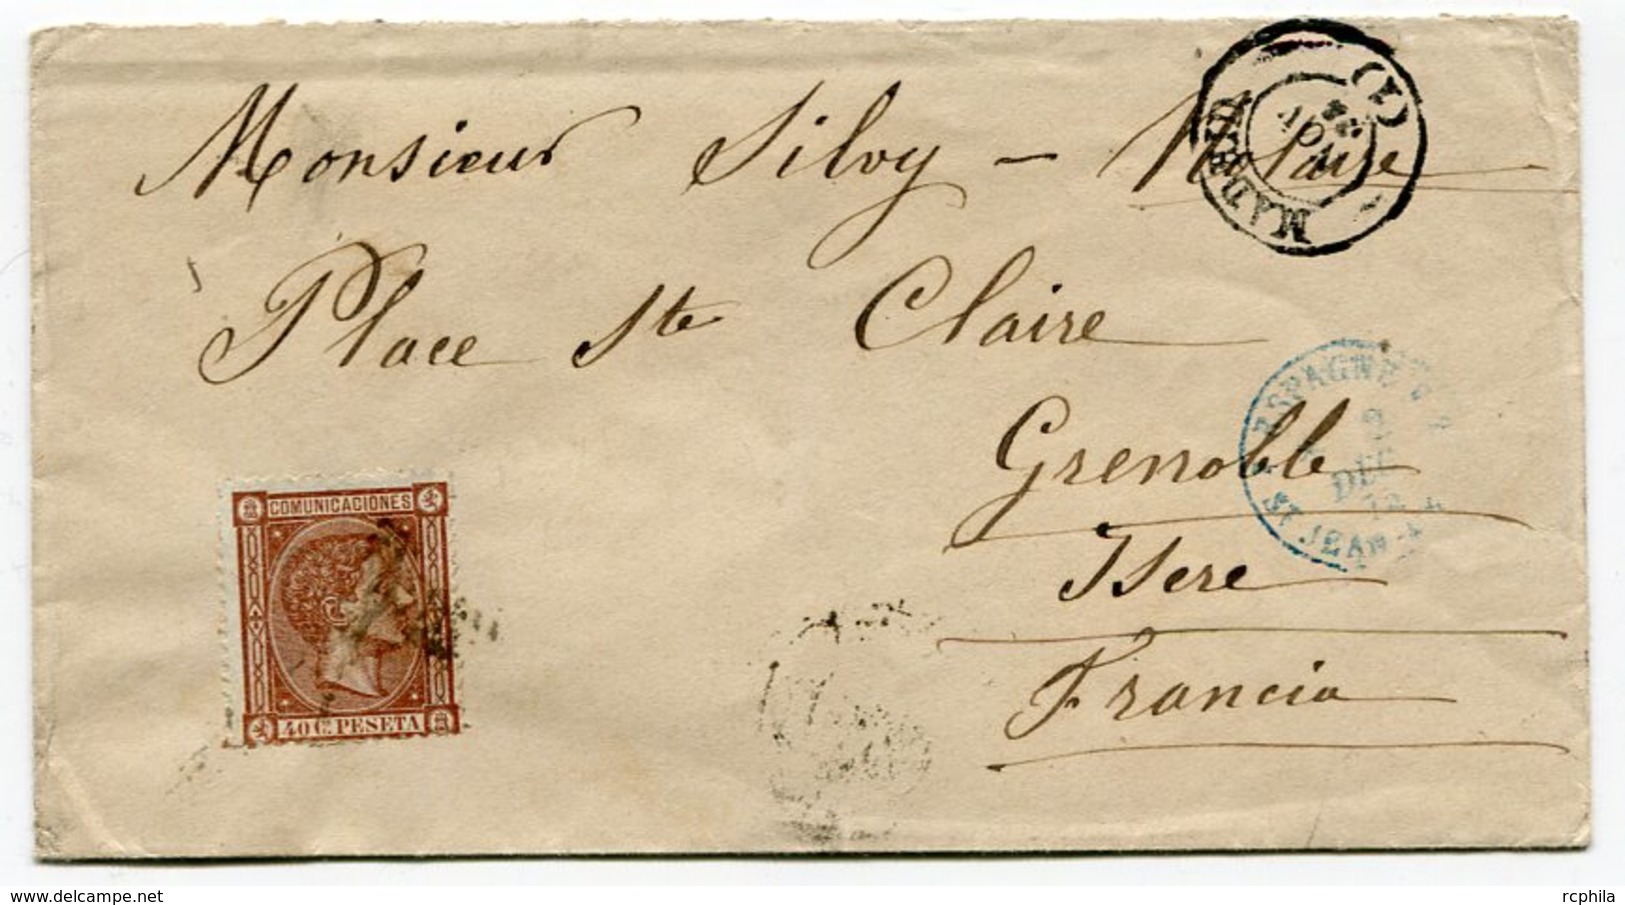 Monsieur Silvy - Notaire
Place Ste Claire
Grenoble
Isere
Francia
MADRID
(1)
NOV
ESPAGNE
2
DEC
ST JEAN
COMUNICACIONES
40 Cs PESETA
www.delcampe.net
rcphila